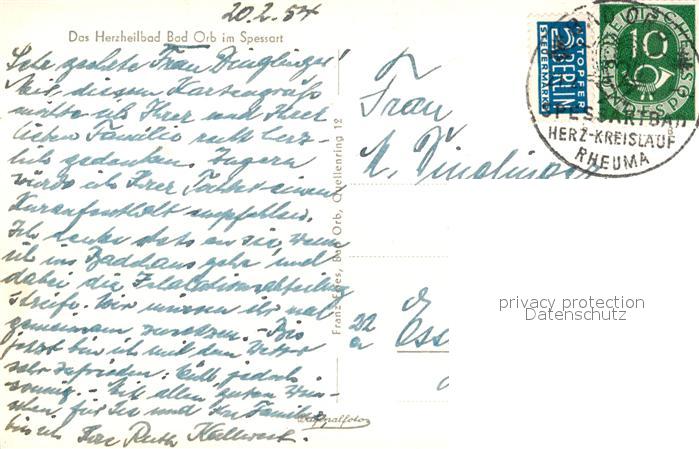 20.2.54
Das Herzheilbad Bad Orb im Spessart
Sehr geehrte Frau Dinglinger!
Mit diesem Kartengruß
möchte ich Ihrer und Ihrer
lieben Familie recht herz-
lich gedenken. Zu gern
würde ich Ihrer Tochter einen
Kuraufenthalt empfehlen.
Ich denke stets an sie, wenn
ich ins Badehaus gehe und
dabei die Inhalationsabteilung
streife. Wir müssen ihr mal
gemeinsam zusetzen. - Bis
jetzt bin ich mit dem Wetter
sehr zufrieden: kalt jedoch
sonnig. - Mit allen guten Wün-
schen für Sie und Ihre Familie
bin ich Ihre Ruth
Franz Bad Orb, Quellenring 12
Originalfoto
Frau
Dinglinger
22
a
Ess
NOTOPFER
2 BERLIN
STEUERMARKE
DEUTSCHE
10
BAD ORB
SPESSARTBAD
HERZ-KREISLAUF
RHEUMA
privacy protection
Datenschutz